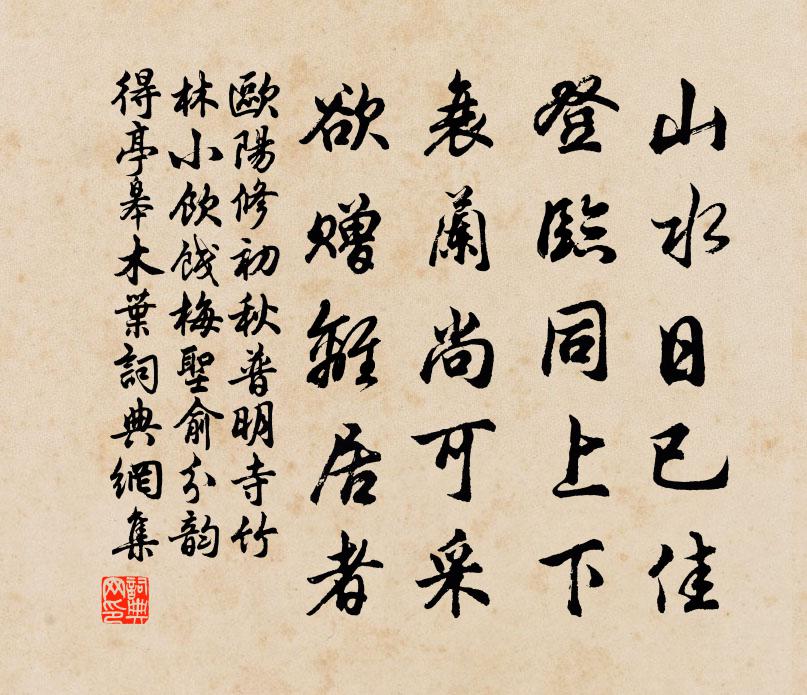 山水日已佳
登臨同上下
衰蘭尚可采
欲贈離居者
歐陽修初秋普明寺竹
林小飲餞梅聖俞分韵
得亭皋木葉詞典網集
詞典